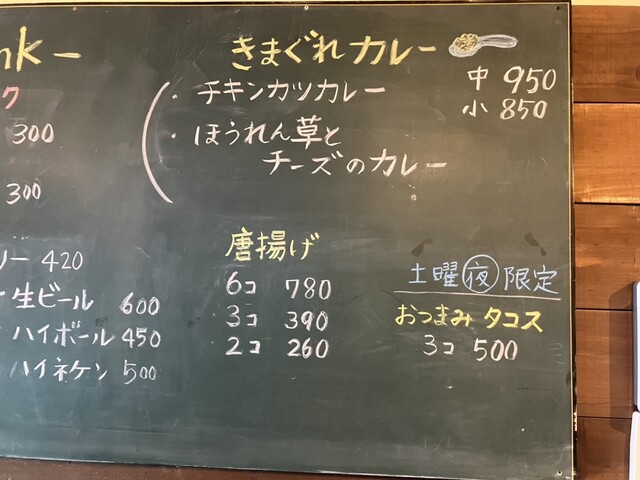 nk-
ク
300
300
リー 420
生ビール 600
ハイボール 450
ハイネケン 500
きまぐれカレー
中 950
小 850
・チキンカツカレー
・ほうれん草と
チーズのカレー
唐揚げ
6コ 780
3コ 390
2コ 260
土曜夜限定
おつまみタコス
3コ 500